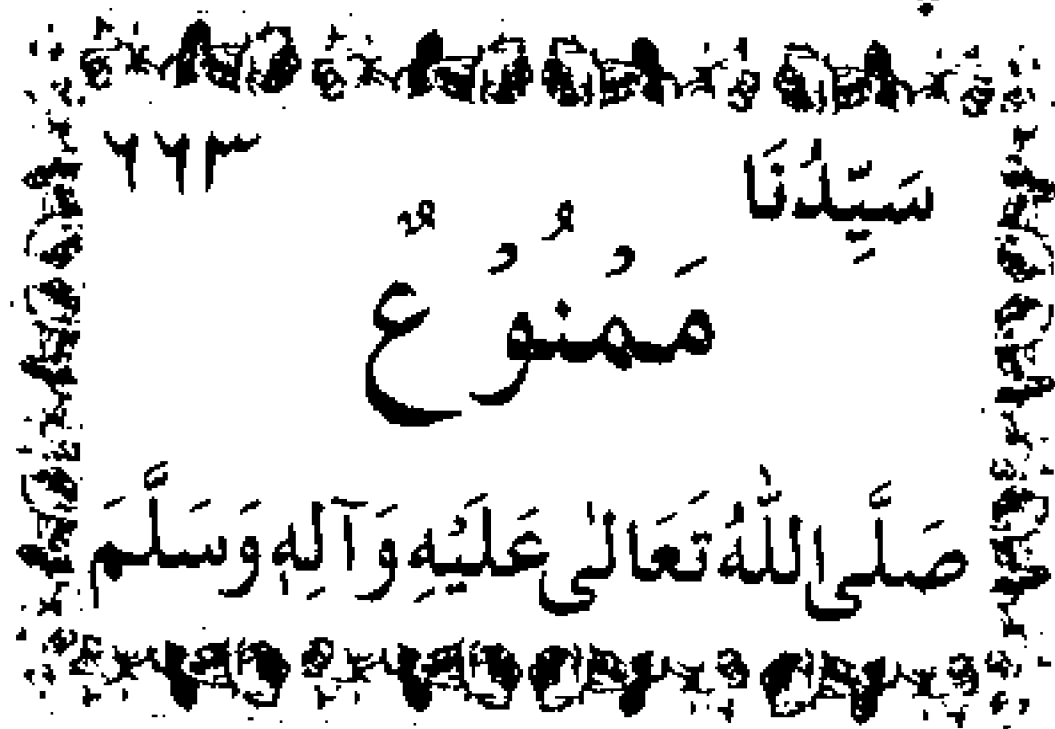 سَيِّدُنَا ٦٦٣
مَمْنُوْعٌ
صَلَّى اللّٰهُ تَعَالٰى عَلَيْهِ وَآلِهٖ وَسَلَّمَ